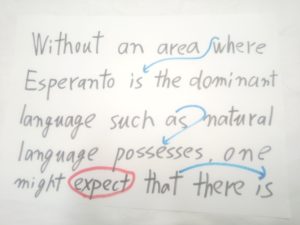 Without an area where
Esperanto is the dominant
language such as natural
language possesses, one
might expect that there is